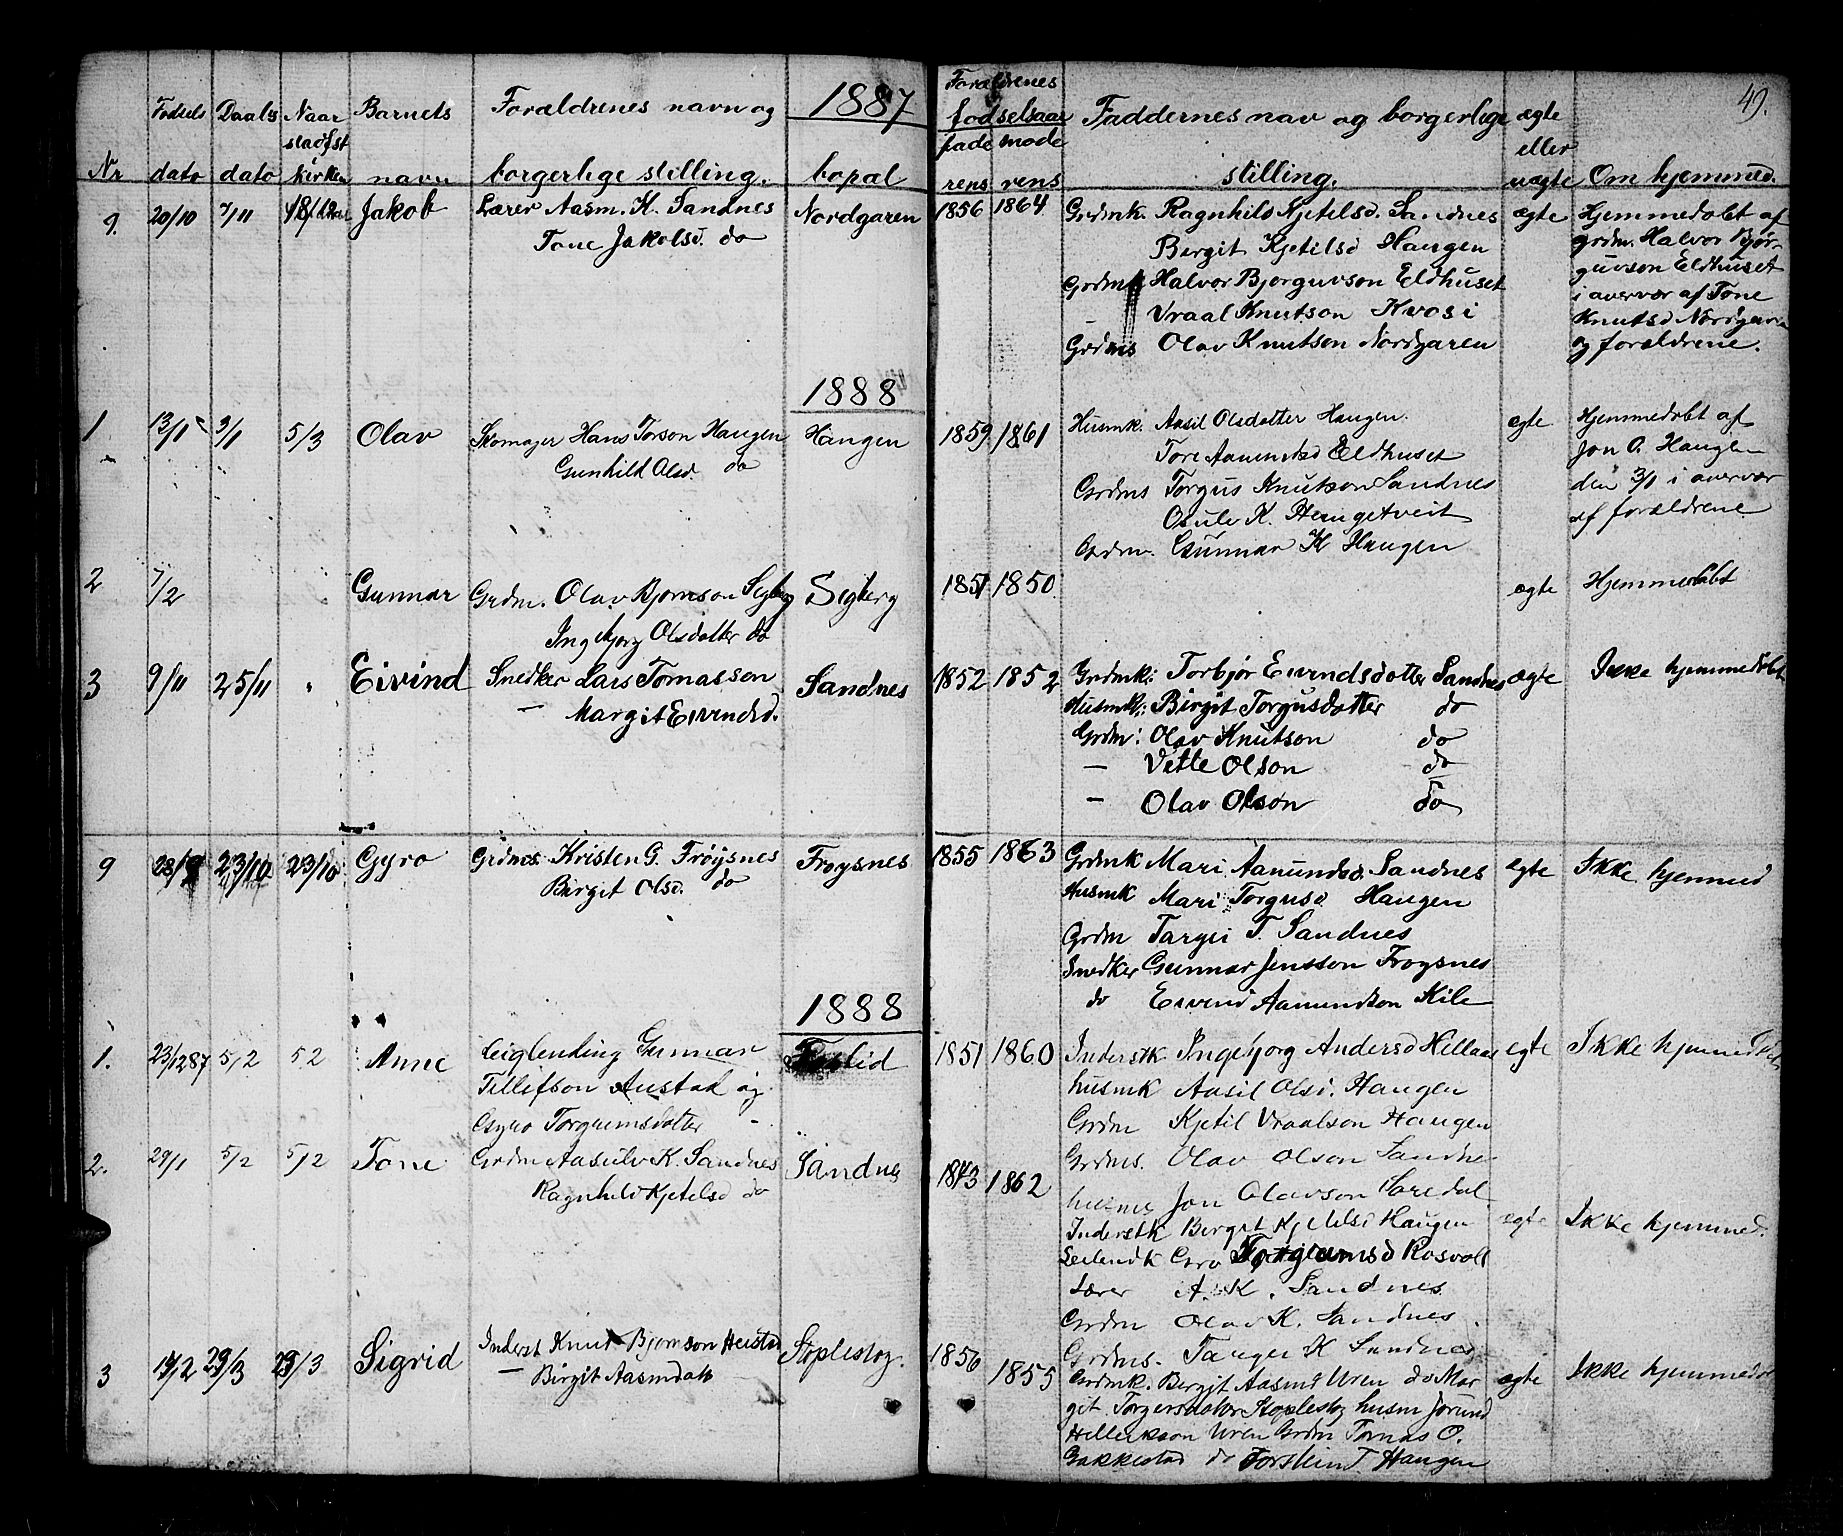 49.
Nr
Fødsels dato
Daabs dato
Naar stadfst kirken
Barnets navn
Forældrenes navn og borgerlige stilling.
1887
bopæl
Forældrenes fødselsaar
faderens
moderens
Faddernes nav og borgerlige stilling.
ægte eller uægte
Om hjemmed.
9. 20/10 7/11 Jakob Lærer Aasm. K. Sandnes Nordgaren 1856 1864 Grdmk. Ragnhild Kjetelsd. Sandnes ægte Hjemmedøbt af
Tone Jakolsd. do Bergit Kjetilsd Haugen grdm. Halvor Bjør-
Grdmk Halvor Bjorguvson Eldhuset guvson Eldhuset
– Vraal Knutson Kvosi i overvær af Tone
Grdms Olav Knutson Nordgaren Knutsd Nordgaren
og forældrene.
1888
1 13/1 3/1 5/3 Olav Skomager Hans Torson Haugen Haugen 1859 1861 Husmk. Aasil Olsdatter Haugen. egte Hjemmedøbt af
Gunhild Olsd. do Tore Aanundsd Eldhuset Jon O. Haugen
Grdms Torgus Knutson Sandnes den 3/1 i overvær
Osulv K. Heugetveit af forældrene
Grdm. Gunnar K Haugen
2 7/2 Gunnar Grdm. Olav Bjornson Sigberg Sigberg 1851 1850 ægte Hjemmedøbt
Ingebjorg Olsdatter do
3 9/11 25/11 " Eivind Snedker Lars Tomasson Sandnes 1852 1852 Grdmk: Torbjør Eivindsdotter Sandnes ægte Ikke hjemmedøbt
– Margit Eivindsd. Husmk: Birgit Torgusdotter do
Grdm: Olav Knutson do
– Vetle Olson do
– Olav Olson do
9 28/9 23/10 23/10 Gyro Grdms. Kristen G. Frøysnes Froysnes 1855 1863 Grdmk Mari Aanundsd. Sandnes egte Ikke hjemmed
Birgit Olsd. do Husmk Mari Torgusd Haugen
Grdm Targei T. Sandnes
Snedker Gunnar Jensson Froysnes
do Eivind Aanundson Kile
1888
1. 23/12 87 5/2 5 2 Anne Leiglending Gunnar 1851 1860 Inderstk Ingebjorg Andersd Hillaas egte Ikke hjemmed
Tillifson Austad og husmk Aasil Olsd. Haugen
Gyro Torgrumsdotter – Grdm Kjetil Vraalson Haugen
2. 29/1 5/2 5/2 Tone Grdm Aasulv K. Sandnes Sandnes 1843 1862 Grdms. Olav Olson Sandne
Ragnhild Kjetelsd do Jon Olavson
Inderstk Bergit Kjetilsd Haugen egte Ikke hjemmed.
Leilendk Gyro Torgrumsd Rosvoll
Lærer A. K. Sandnes
Grdm Olav K. Sandnes.
3 14/2 29/3 29/3 Sigrid Inderst Knut Bjornson Heistad Stoplestog. 1856 1855 Grdms. Targer K Sandnes
– Birgit Aasmdatt Grdmk. Bergit Aasmd Uren do Mar egte Ikke hjemmedø
git Torgersdatter Stoplestog husm Jorund
Hellerkson Uren Grdm Tomas O.
Gakkestad do Torstein T Haugen